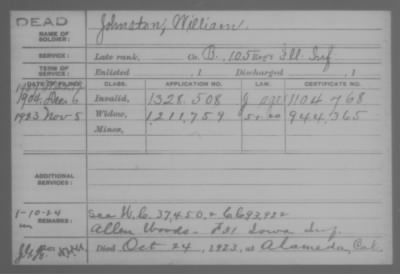 DEAD
NAME OF SOLDIER: Johnston, William
SERVICE: Late rank, Co. B, 105 Reg't Ill. Inf
TERM OF SERVICE: Enlisted , 1 Discharged , 1
DATE OF FILING. CLASS. APPLICATION NO. LAW. CERTIFICATE NO.
1904 Dec 6 Invalid, 1328.508 1104768
1923 Nov 5 Widow, 1,211,759 944,365
Minor,
ADDITIONAL SERVICES:
1-10-24 see W.C. 37,450, &
REMARKS: Allen Woods- F 31 Iowa Inf.
Died Oct 24, 1923, at Alameda, Cal.